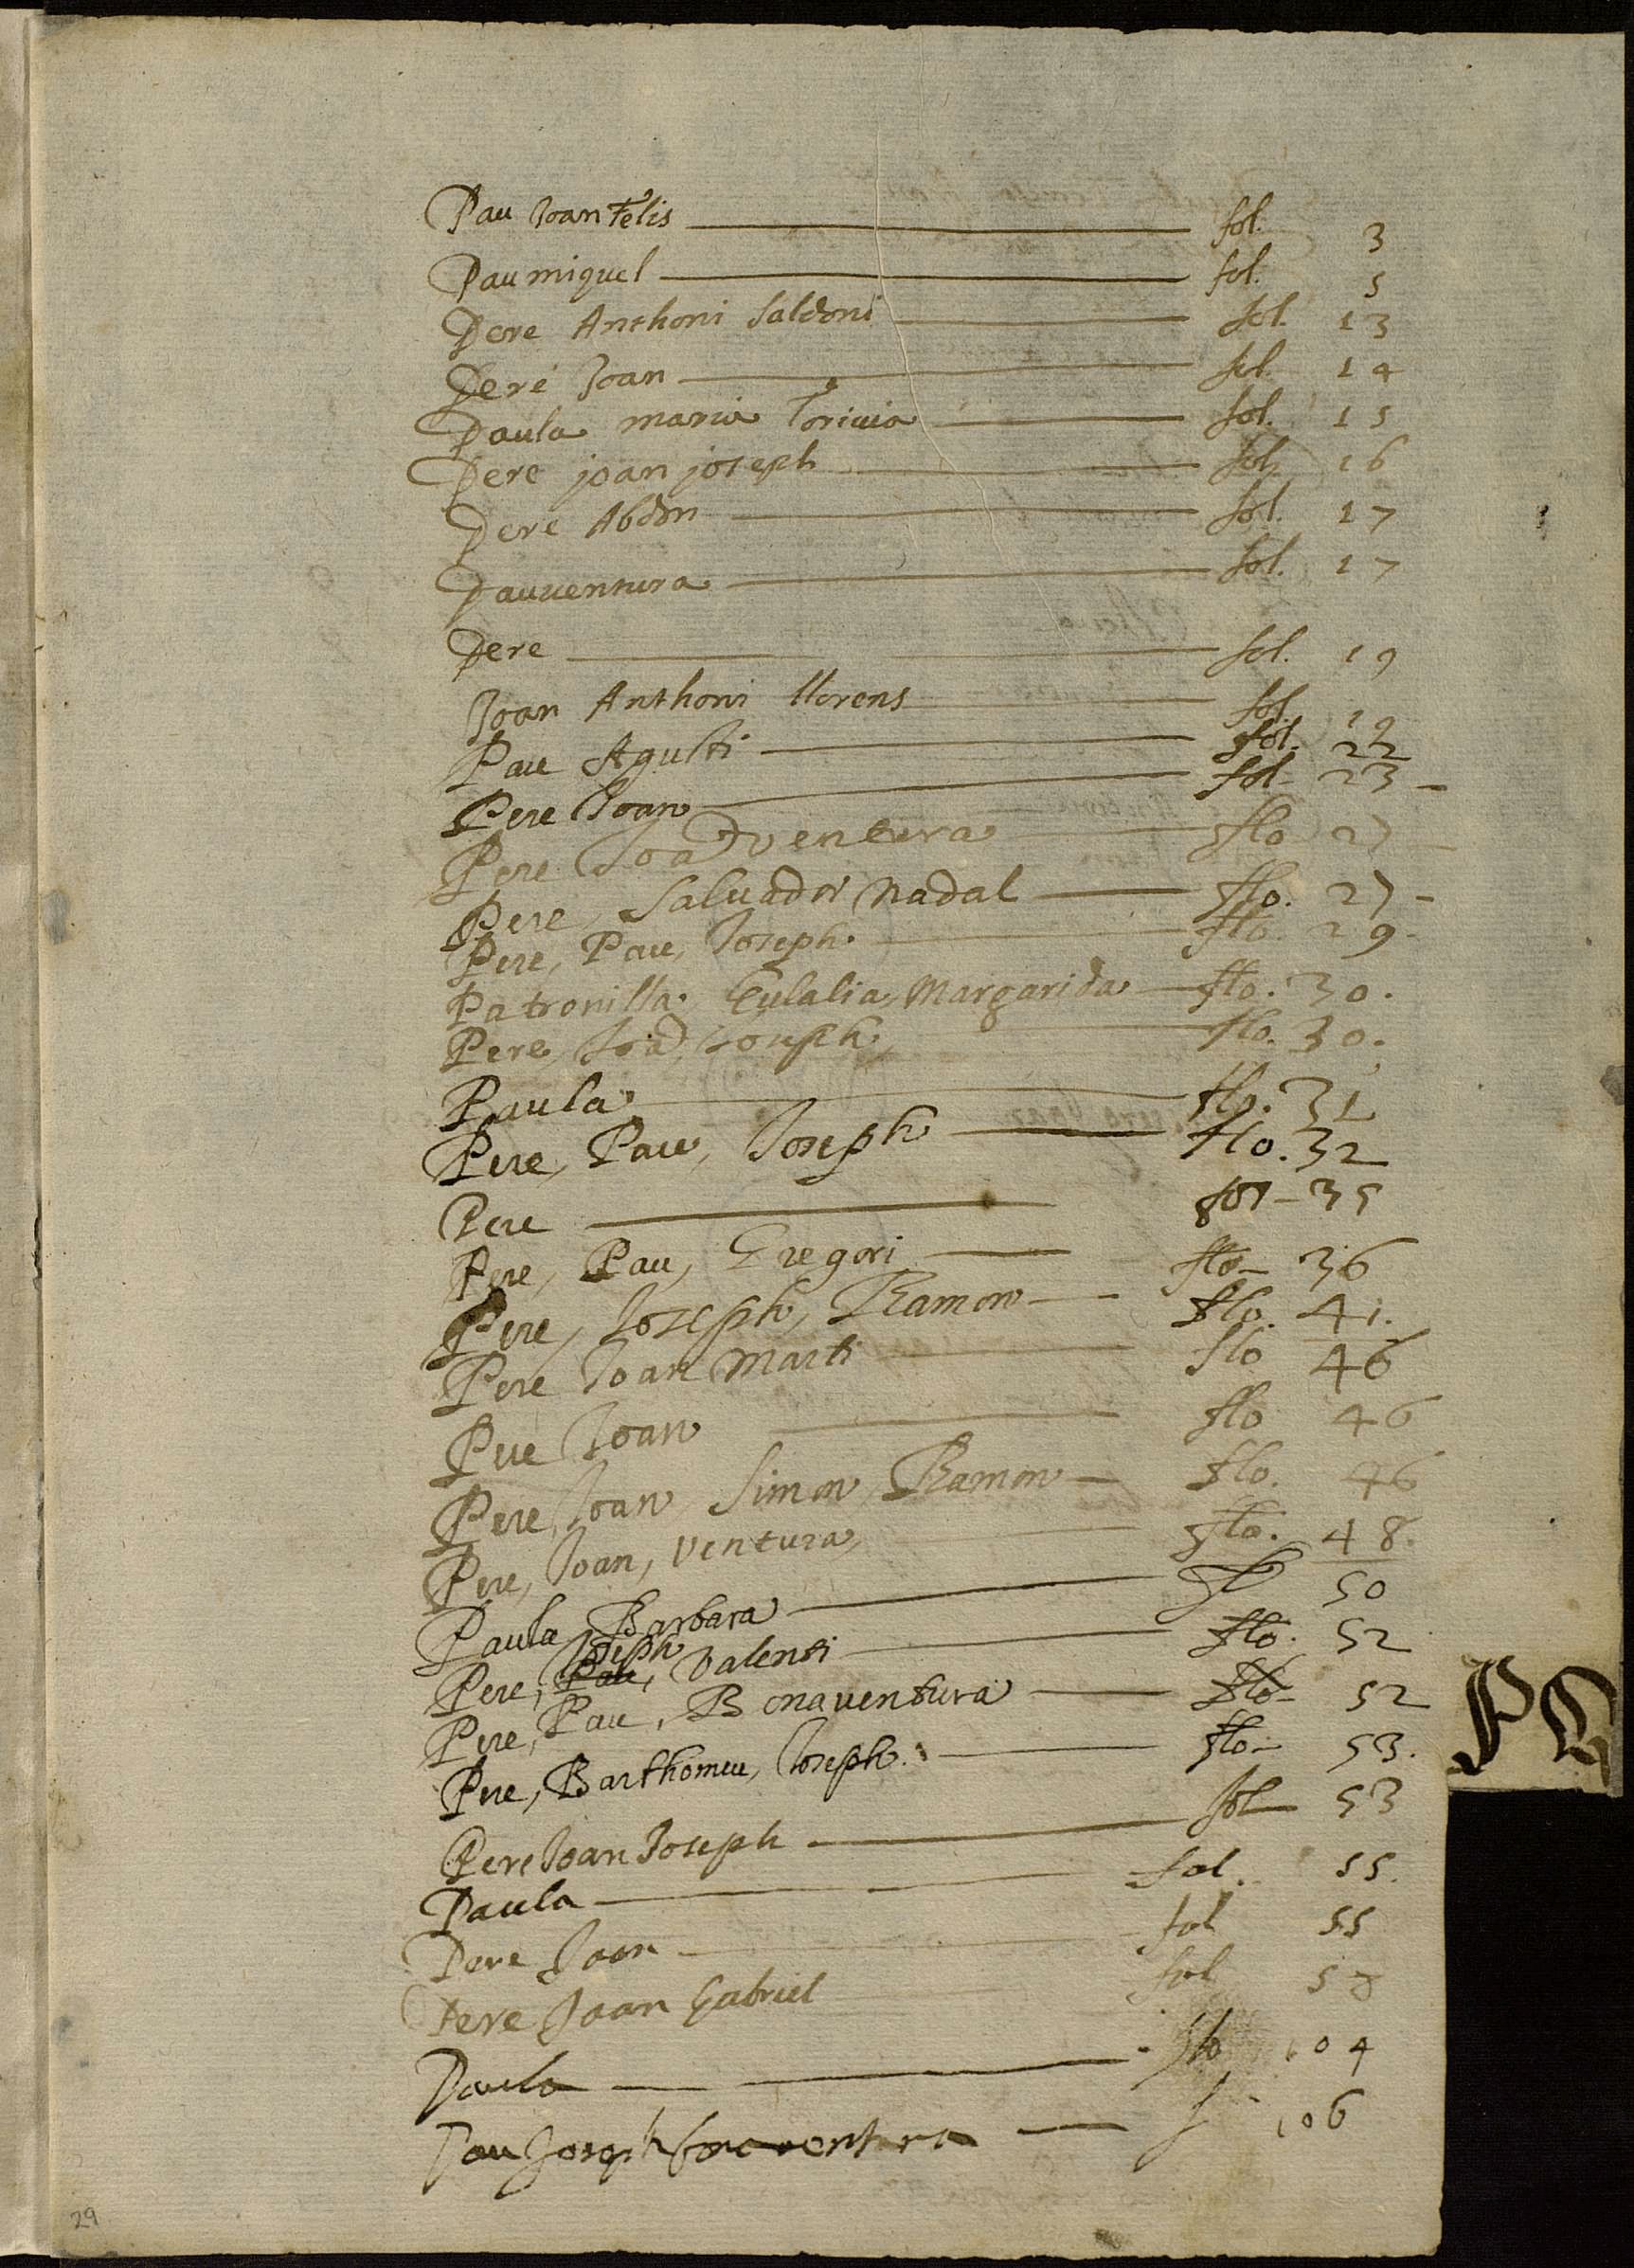 Pau Joan Felis fol. 3
Pau miquel fol. 5
Pere Anthoni Saldoni fol. 13
Pere Joan fol. 14
Paula maria fol. 15
Pere joan joseph fol. 16
Pere Abdon fol. 17
Pauventura fol. 17
Pere fol. 19
Joan Anthoni llorens fol. 19
Pau Agusti fol. 22
Pere Joan fol 23
Pere Joā Ventura flo 27
Pere, Salvador Nadal flo. 27
Pere, Pau, Joseph flo. 29
Patronilla, Eulalia, Margarida flo. 30.
Pere, Joā, Joseph flo. 30.
Paula flo. 31
Pere, Pau, Joseph flo. 32
Pere fol 35
Pere, Pau, Gregori flo 36
Pere, Joseph, Ramon flo. 41.
Pere Joan Marti flo 46
Pere Joan flo 46
Pere, Joan, Simon, Ramon flo. 46
Pere, Joan, Ventura flo. 48.
Paula Barbara 50
Joseph
Pere, Pau, Valenti flo. 52
Pere, Pau, Bonaventura flo 52
Pere, Barthomeu, Joseph flo 53.
PQ
Pere Joan Joseph fol 53
Paula fol. 55.
Pere Joan fol 55
Pere Joan Gabriel fol
Paula flo 104
Pau Joseph bonaventura f 106
29